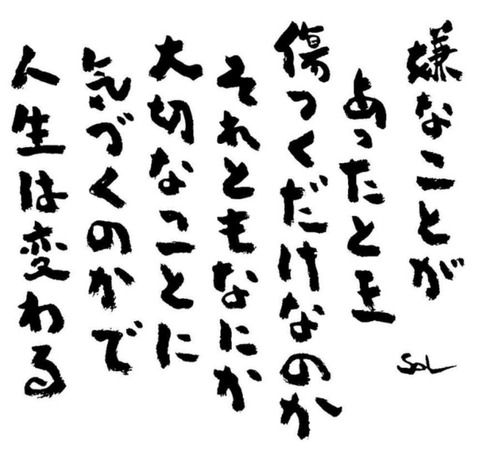 嫌なことが
あったとき
傷つくだけなのか
それともなにか
大切なことに
気づくのかで
人生は変わる
SOL